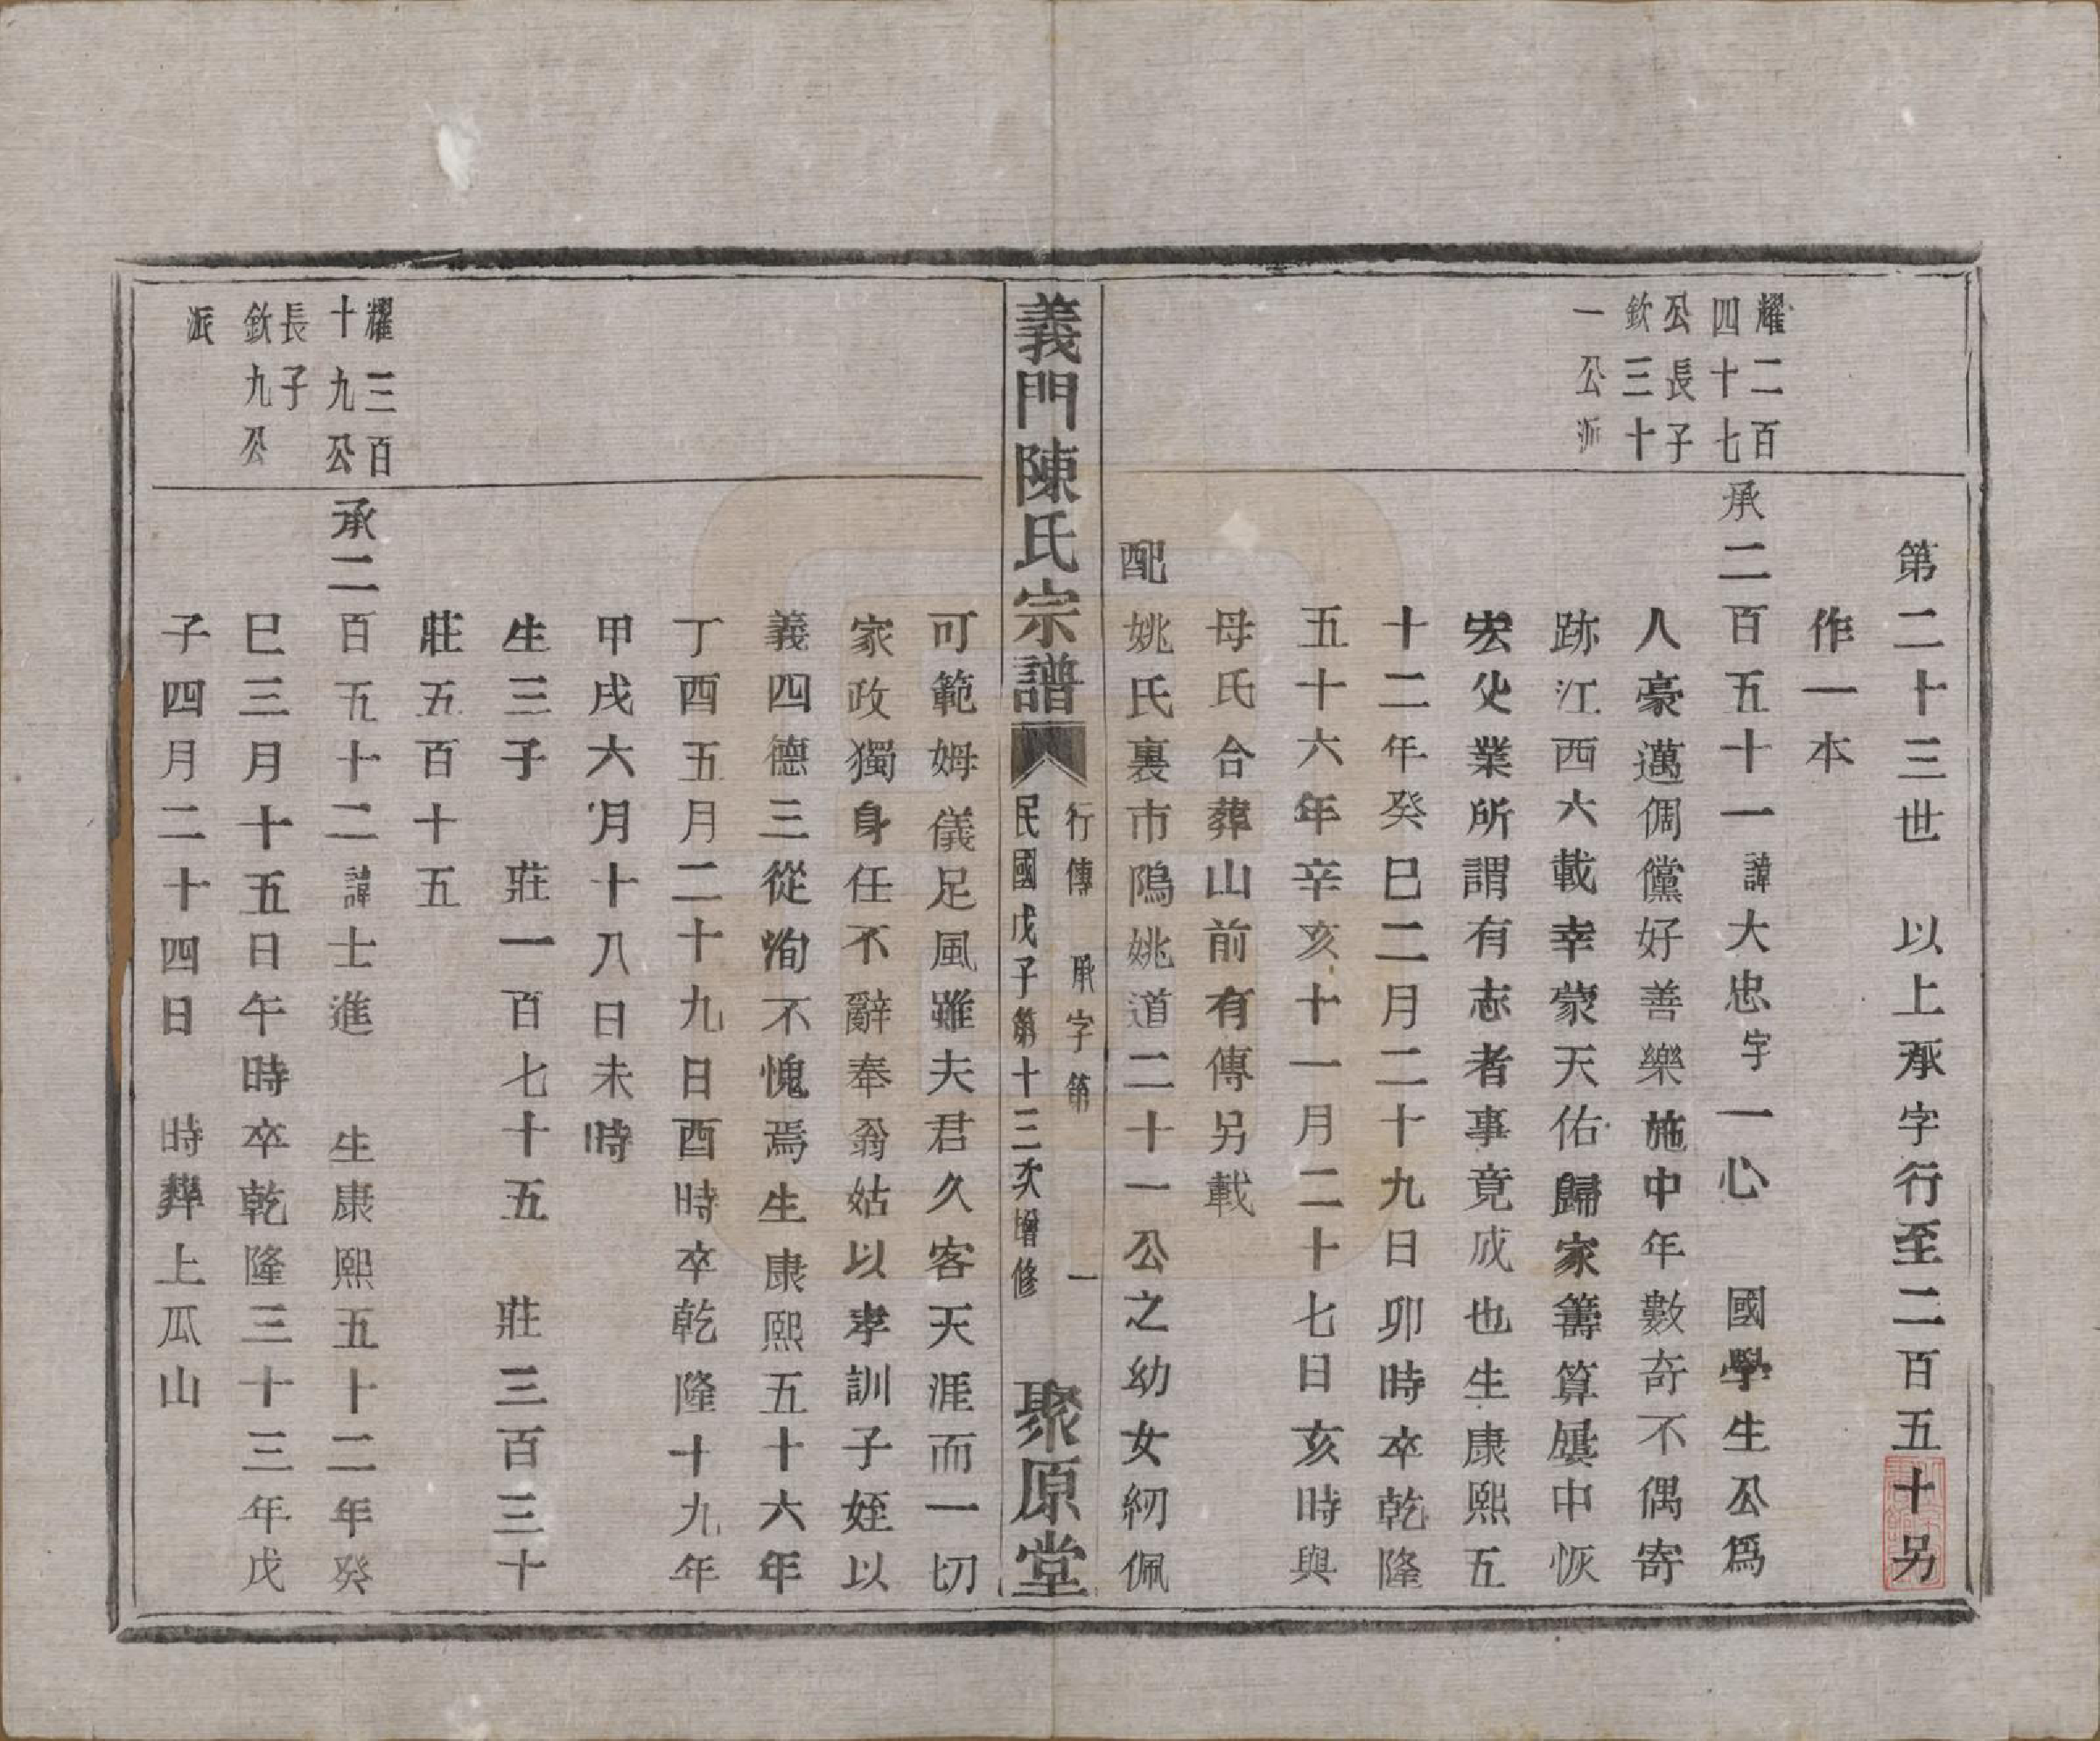 第二十三世　以上承字行至二百五十另
作一本
耀二百
四十七
公長子
欽三十
一公派
承二百五十一諱大忠字一心　國學生公爲
人豪邁倜儻好善樂施中年數奇不偶寄
跡江西六載幸蒙天佑歸家籌算屢中恢
宏父業所謂有志者事竟成也生康熙五
十二年癸巳二月二十九日卯時卒乾隆
五十六年辛亥十一月二十七日亥時與
母氏合葬山前有傳另載
配姚氏裏市隝姚道二十一公之幼女紉佩
義門陳氏宗譜
行傳　承字第　一
民國戊子第十三次增修
聚原堂
可範姆儀足風雖夫君久客天涯而一切
家政獨身任不辭奉翁姑以孝訓子姪以
義四德三從洵不愧焉生康熙五十六年
丁酉五月二十九日酉時卒乾隆十九年
甲戌六月十八日未時
生三子　莊一百七十五　莊三百三十
莊五百十五
耀三百
十九公
長子
欽九公
派
承二百五十二諱士進　生康熙五十二年癸
巳三月十五日午時卒乾隆三十三年戊
子四月二十四日　時葬上瓜山